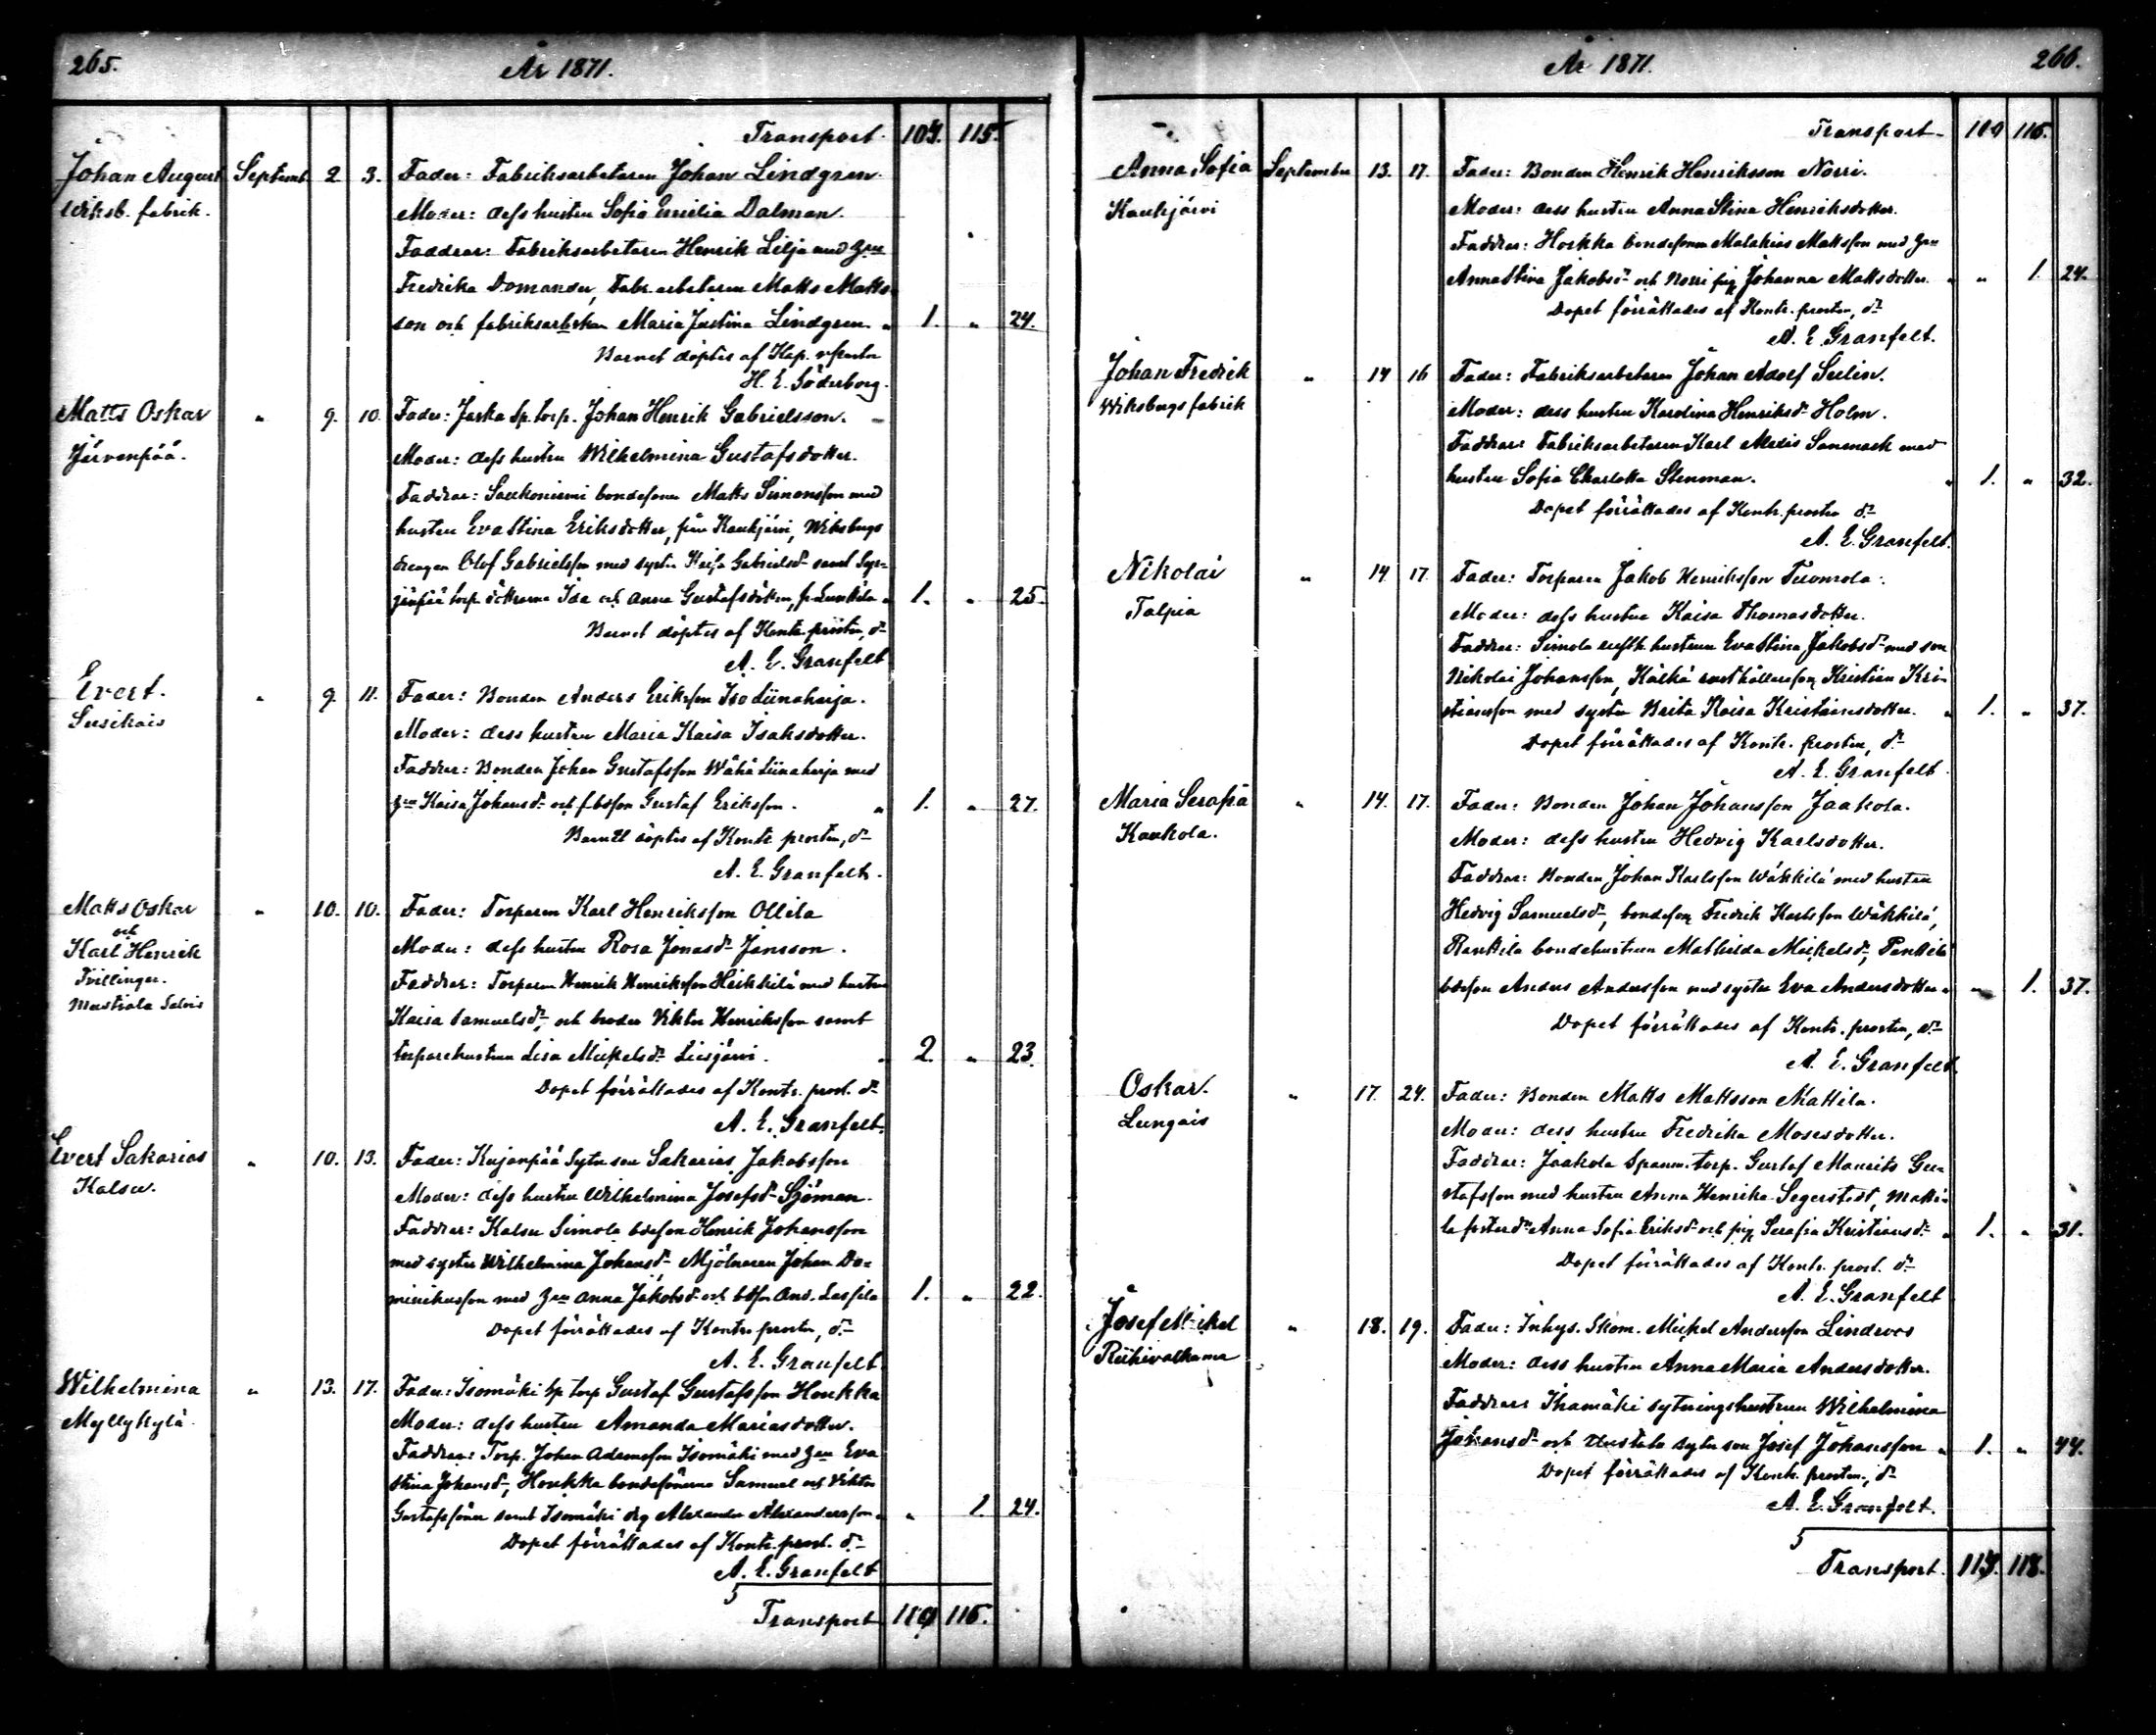 265.
År 1871.
Transport. 115.
Johan August Septemb. 2 3. Fader: Fabriksarbetaren Johan Lindgren.
Wiksb. fabrik. Moder: dess hustru Sofia Emilia Dalman.
Faddrar: Fabriksarbetaren Henrik Lilja med
Fredrika Domander, Fabr. arbetaren Matts Matts-
son och fabriksarbetskan Maria Justina Lindgren. " 1. " 24.
Barnet döptes af Kap.
H. E. Söderborg.
Matts Oskar " 9. 10. Fader: Jaska Sp. torp. Johan Henrik Gabrielsson.
Järvenpää. Moder: dess hustru Wilhelmina Gustafsdotter.
Faddrar: Saukoniemi bondesonen Matts Simonsson med
hustru Eva Stina Eriksdotter, från Kaukjärvi, Wiksbergs
drengen Olof Gabrielsson med syster Kaisa Gabrielsd. samt Syr-
jänpää torp. döttrarna Ida och Anna Gustafsdöttrar, " 1. " 25.
Barnet döptes af Kontr. prosten, dr
A. E. Granfelt
Evert. " 9. 11. Fader: Bonden Anders Eriksson Iso Liinaharja.
Susikais Moder: dess hustru Maria Kaisa Isaksdotter.
Faddrar: Bonden Johan Gustafsson Wähä Liinaharja med
Kaisa Johansd. och Gustaf Eriksson. " 1. " 27.
Barnet döptes af Kontr. prosten, dr
A. E. Granfelt.
Matts Oskar " 10. 10. Fader: Torparen Karl Henriksson Ollila
och
Karl Henrik Moder: dess hustru Rosa Jonasdr Jansson.
Tvillingar. Faddrar: Torparen Henrik Henriksson Heikkilä med hustru
Mustiala Salvis Kaisa Samuelsdr, och broder Viktor Henriksson samt
torparehustrun Lisa Mickelsdr Liesjärvi. " 2. " 23.
Dopet förrättades af Kontr. prost. dr
A. E. Granfelt.
Evert Sakarias " 10. 13. Fader: Kujanpää Sytn. son Sakarias Jakobsson
Kalsu. Moder: dess hustru Wilhelmina Josefsdr Sjöman.
Faddrar: Kalsu Simola bdeson Henrik Johansson
med syster Wilhelmina Johansdr, Mjölnaren Johan Do-
minikusson med Anna Jakobsdr och And. Lassila 1. " 22.
Dopet förrättades af Kontr. prosten, dr
A. E. Granfelt.
Wilhelmina " 13. 17. Fader: Isomäki Sp torp Gustaf Gustafsson Houkka
Myllykylä. Moder: dess hustru Amanda Mariasdotter.
Faddrar: Torp. Johan Adamsson Isomäki med Eva
Stina Johansdr, Houkka bondesönerna Samuel och Viktor
Gustafssöner samt Isomäki drg Alexander Alexandersson. " " 1. 24.
Dopet förrättades af Kontr. prost. dr
A. E. Granfelt
Transport 116.
266.
År 1871.
Transport. 116.
Anna Sofia September 13. 17. Fader: Bonden Henrik Henriksson Norri.
Kaukjärvi Moder: dess hustru Anna Stina Henriksdotter.
Faddrar: Horkka bondesonen Malakias Mattsson med
Anna Stina Jakobsdr och Norri pig Johanna Mattsdotter. " " 1. 24.
Dopet förrättades af Kontr. prosten, dr
A. E. Granfelt.
Johan Fredrik " 14 16 Fader: Fabriksarbetaren Johan Adolf Selin.
Wiksbergs fabrik Moder: dess hustru Karolina Henriksdr Holm.
Faddrar: Fabriksarbetaren Karl Alexis Sanmark med
hustru Sofia Charlotta Stenman. " 1. " 32.
Dopet förrättades af Kontr. prosten dr
A. E. Granfelt.
Nikolai " 14. 17. Fader: Torparen Jakob Henriksson Tuomola.
Talpia Moder: dess hustru Kaisa Thomasdotter.
Faddrar: Simola hustrun Eva Stina Jakobsdr med son
Nikolai Johansson, Kälkä rusthållareson Kristian Kri-
stiansson med syster Brita Kaisa Kristiansdotter. " 1. " 37.
Dopet förrättades af Kontr. prosten, dr
A. E. Granfelt.
Maria Serafia " 14. 17. Fader: Bonden Johan Johansson Jaakola.
Kaukola. Moder: dess hustru Hedvig Karlsdotter.
Faddrar: Bonden Johan Karlsson Wäkkilä med hustru
Hedvig Samuelsdr, bondeson Fredrik Karlsson Wäkkilä,
Rankila bondehustrun Mathilda Mickelsdr, Penttilä
bdeson Anders Andersson med syster Eva Andersdotter. " " 1. 37.
Dopet förrättades af Kontr. prosten, dr
A. E. Granfelt.
Oskar. " 17. 24. Fader: Bonden Matts Mattsson Mattila.
Lungais Moder: dess hustru Fredrika Mosesdotter.
Faddrar: Jaakola Spanm. torp. Gustaf Maurits Gu-
stafsson med hustru Anna Henrika Segerstedt, Matti-
la fosterdr Anna Sofia Eriksdr och pig Serafia Kristiansdr " 1. " 31.
Dopet förrättades af Kontr. prost. dr
A. E. Granfelt
Josef Mikel " 18. 19. Fader: Inhys. Skom. Mickel Andersson Lindroos
Riihivalkama Moder: dess hustru Anna Maria Andersdotter.
Faddrar: Ihamäki sytningshustrun Wilhelmina
Johansdr och sytn son Josef Johansson " 1. " 44.
Dopet förrättades af Kontr. prosten, dr
A. E. Granfelt.
Transport. 118.